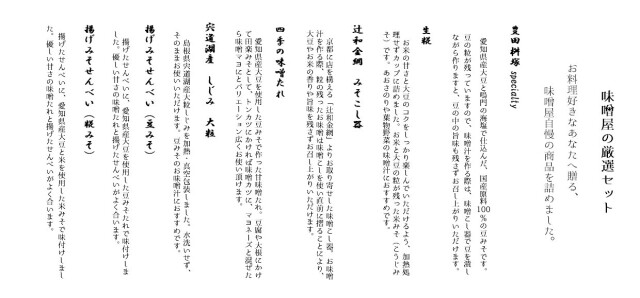 味噌屋の厳選セット
お料理好きなあなたへ贈る、
味噌屋自慢の商品を詰めました。
豊田桝塚 specialty
愛知県産大豆と鳴門の海塩で仕込んだ、国産原料100%の豆みそです。
豆の粒が残っていますので、味噌汁を作る際は、味噌こし器で豆を潰し
ながら作りますと、豆の中の旨味も残さずお召し上がりいただけます。
生糀
お米の甘さと大豆のコクをしっかり楽しんでいただけるよう、加熱処
理せずカップに詰めました。お米と大豆の粒が残った米みそ（こうじみ
そ）です。あおさのりや葉物野菜の味噌汁におすすめです。
辻和金網 みそこし器
京都に店を構える「辻和金網」よりお取り寄せした味噌こし器。お味噌
汁を作る際、粒の残ったお味噌は味噌こしを使い直前に摺ることにより、
大豆やお米の香りや旨味を残さずお召し上がりいただけます。
四季の味噌たれ
愛知県産大豆を使用した豆みそで作った甘味噌だれ。豆腐や大根にかけ
て田楽みそとして、トンカツにかければ味噌カツに、マヨネーズと混ぜた
ら味噌マヨにとバリエーション広くお使い頂けます。
宍道湖産 しじみ 大粒
島根県宍道湖産大粒しじみを加熱・真空包装しました。水洗いせず、
そのままお使いいただけます。豆みそのお味噌汁におすすめです。
揚げみそせんべい（豆みそ）
揚げたせんべいに、愛知県産大豆を使用した豆みそたれで味付けしま
した。優しい甘さの味噌たれと揚げたせんべいがよく合います。
揚げみそせんべい（糀みそ）
揚げたせんべいに、愛知県産大豆と米を使用した米みそで味付けしまし
た。優しい甘さの味噌たれと揚げたせんべいがよく合います。